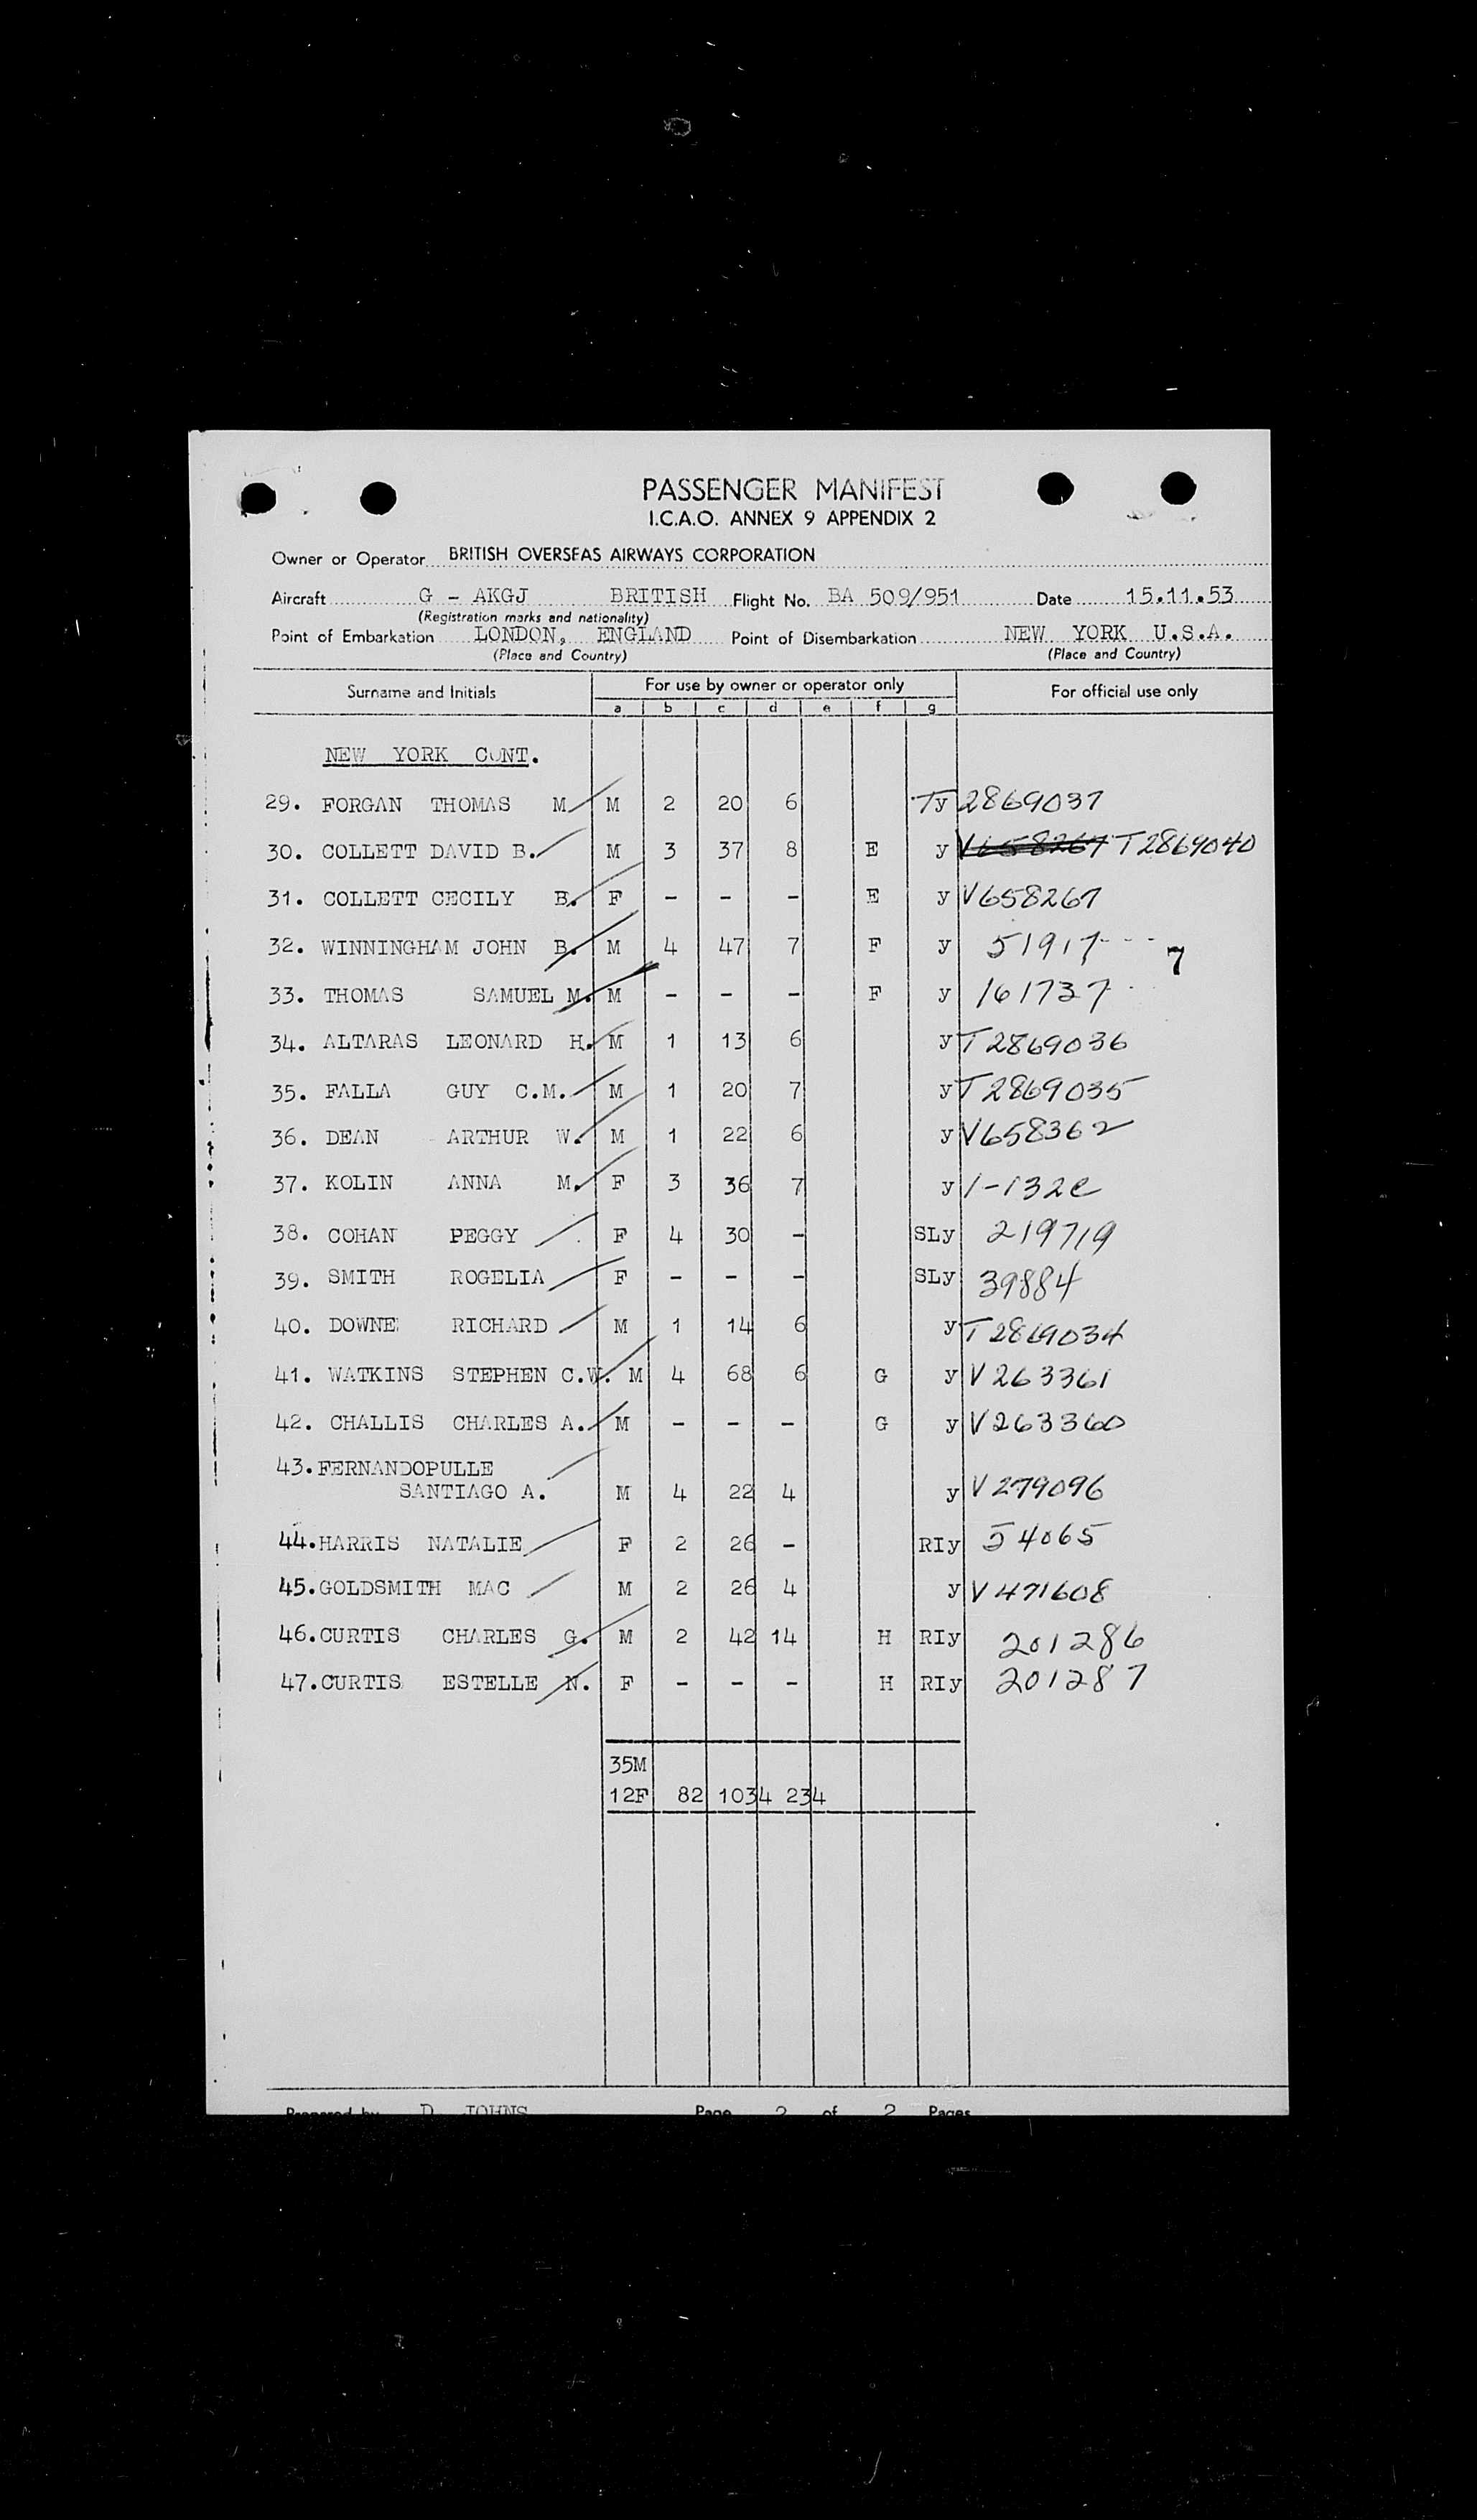 PASSENGER MANIFEST
I.C.A.O. ANNEX 9 APPENDIX 2
Owner or Operator BRITISH OVERSEAS AIRWAYS CORPORATION
Aircraft G - AKGJ BRITISH Flight No. BA 509/951 Date 15.11.53
(Registration marks and nationality)
Point of Embarkation LONDON, ENGLAND Point of Disembarkation NEW YORK U.S.A.
(Place and Country) (Place and Country)
Surname and Initials For use by owner or operator only For official use only
a b c d e f g
NEW YORK CONT.
29. FORGAN THOMAS M. M 2 20 6 Ty 2869037
30. COLLETT DAVID B. M 3 37 8 E y V658267 T2869040
31. COLLETT CECILY B. F - - - E y V658267
32. WINNINGHAM JOHN B. M 4 47 7 F y 51917
7
33. THOMAS SAMUEL M. M - - - F y 161737
34. ALTARAS LEONARD H. M 1 13 6 y T2869036
35. FALLA GUY C.M. M 1 20 7 y T2869035
36. DEAN ARTHUR W. M 1 22 6 y V658362
37. KOLIN ANNA M. F 3 36 7 y 1-132e
38. COHAN PEGGY F 4 30 - SLy 219719
39. SMITH ROGELIA F - - - SLy 39884
40. DOWNE RICHARD M 1 14 6 y T2869034
41. WATKINS STEPHEN C.W. M 4 68 6 G y V263361
42. CHALLIS CHARLES A. M - - - G y V263360
43. FERNANDOPULLE
SANTIAGO A. M 4 22 4 y V279096
44. HARRIS NATALIE F 2 26 - RIy 54065
45. GOLDSMITH MAC M 2 26 4 y V471608
46. CURTIS CHARLES G. M 2 42 14 H RIy 201286
47. CURTIS ESTELLE N. F - - - H RIy 201287
35M
12F 82 1034 234
Prepared by D. JOHNS Page 2 of 2 Pages